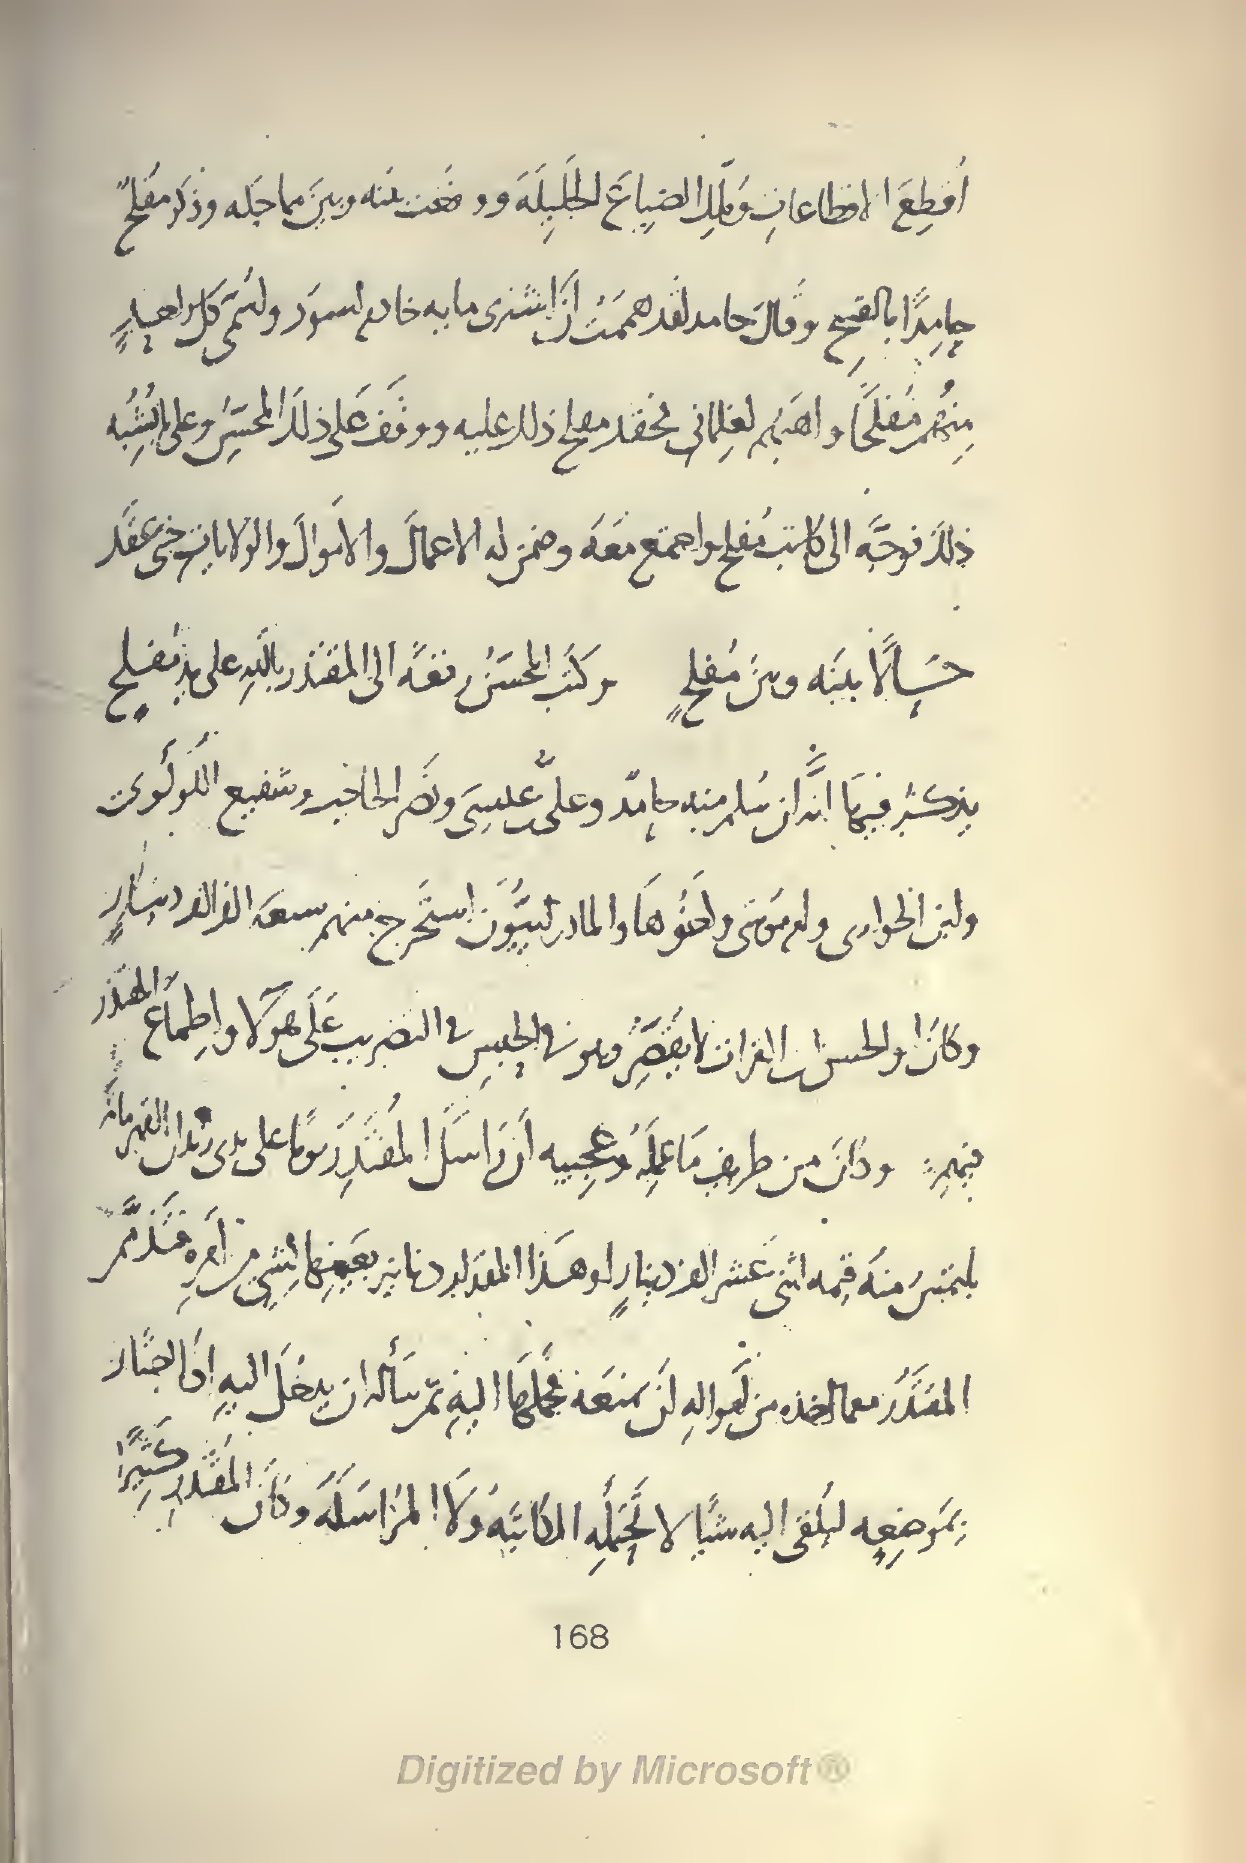 أُقطِعَ الاقطاعاتِ ومُلِّكَ الضياعَ الجَليلَةَ ووقعت بينه وبينَ حامد وذكر مُفلحٌ
حامِدًا بالقبيح وقالَ حامد لقد هممتُ أن اشترى مايه خادم اسوَد واُسمّى كل واحدٍ
مِنهُم مُفلحًا واهبهم لغلمانى فحقد مفلح ذلك عليه ووقفَ على ذلك المحسّنُ وعلى ما يُشبِه
ذلكَ فوجَّه الى كاتبِ مُفلحٍ واجتمع مَعَه وضمن له الاعمالَ والاموالَ والولاياتِ حتى عقَد
حَالًا بينَه وبينَ مُفلحٍ وكتَب المحسّنُ رقعَةً الى المقتدر باللهِ على يدِ مُفلحٍ
يذكُر فيهَا انَّه ان سُلم منه حامِدٌ وعلىُّ بن عيسَى ونَصر الحاجب وشفيع اللُّولُوىّ
وابن الحوارى وام موسى واخوُهَا والمادرائيُّون استَخرج منهم سبعَة الف الف دينارٍ
وكانَ ابو الحسن بن الفرات لا يقَصِّرُ وهو فى الحبسِ فى التضريب عَلَى هولآ واطماع المقتدر
فيهم وكانَ من طريفِ مَا عملَه وعجيبِه أن رَاسَلَ المقُتدِرَ يومًا على يدى زيدان القهرمانَة
يلتمسُ منهُ قيمه اثنى عَشر الف دينارٍ لو هَذا المقدار دنانير بعَينها لشىٍ من امرِه فتذَمَّر
المقتَدُر مع ما اخذه من امواله ان يمنعَه فحمَلهَا اليهِ ثمّ سَأله ان يدخُلَ اليهِ اذا اجتاز
بمَوضِعِه ليُلقى اليه شيًا لا تحَتملُه المكاتبَةُ ولَا المرُاسَلَة وكانَ المقُتدر كَثِيرًا
168
Digitized by Microsoft®